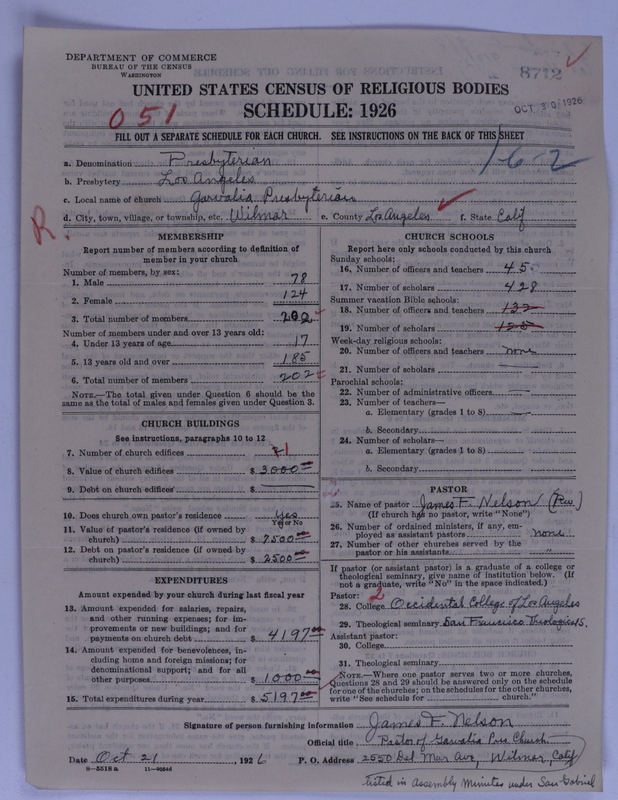 DEPARTMENT OF COMMERCE
BUREAU OF THE CENSUS
WASHINGTON
8712
UNITED STATES CENSUS OF RELIGIOUS BODIES
SCHEDULE: 1926
OCT 30 1926
051
FILL OUT A SEPARATE SCHEDULE FOR EACH CHURCH. SEE INSTRUCTIONS ON THE BACK OF THIS SHEET
1-6-2
a. Denomination Presbyterian
b. Presbytery Los Angeles
c. Local name of church Garvalia Presbyterian
d. City, town, village, or township, etc. Wilmar e. County Los Angeles f. State Calif
R.
MEMBERSHIP
Report number of members according to definition of
member in your church
Number of members, by sex:
1. Male 78
2. Female 124
3. Total number of members 202
Number of members under and over 13 years old:
4. Under 13 years of age 17
5. 13 years old and over 185
6. Total number of members 202
NOTE.—The total given under Question 6 should be
same as the total of males and females given under Question 3.
CHURCH BUILDINGS
See instructions, paragraphs 10 to 12
7. Number of church edifices 1
8. Value of church edifices $ 3000
9. Debt on church edifices $
10. Does church own pastor's residence yes
Yes or No
11. Value of pastor's residence (if owned by
church) $ 7500
12. Debt on pastor's residence (if owned by
church) $ 2500
EXPENDITURES
Amount expended by your church during last fiscal year
13. Amount expended for salaries, repairs,
and other running expenses; for im-
provements or new buildings; and for
payments on church debt $ 4197
14. Amount expended for benevolences, in-
cluding home and foreign missions; for
denominational support; and for all
other purposes $ 1000
15. Total expenditures during year $ 5197
CHURCH SCHOOLS
Report here only schools conducted by this church
Sunday schools:
16. Number of officers and teachers 45
17. Number of scholars 428
Summer vacation Bible schools:
18. Number of officers and teachers 132
19. Number of scholars 125
Week-day religious schools:
20. Number of officers and teachers none
21. Number of scholars
Parochial schools:
22. Number of administrative officers
23. Number of teachers—
a. Elementary (grades 1 to 8)
b. Secondary
24. Number of scholars—
a. Elementary (grades 1 to 8)
b. Secondary
PASTOR
25. Name of pastor James F. Nelson (Rev)
(If church has no pastor, write "None")
26. Number of ordained ministers, if any, em-
ployed as assistant pastors none
27. Number of other churches served by the
pastor or his assistants "
If pastor (or assistant pastor) is a graduate of a college or
theological seminary, give name of institution below. (If
not a graduate, write "No" in the space indicated.)
Pastor: 2
28. College Occidental College of Los Angeles
29. Theological seminary San Francisco Theological S.
Assistant pastor:
30. College
31. Theological seminary
NOTE.—Where one pastor serves two or more churches,
Questions 28 and 29 should be answered only on the schedule
for one of the churches; on the schedules for the other churches,
write "See schedule for church."
Signature of person furnishing information James F. Nelson
Official title Pastor of Garvalia Pres Church
Date Oct 21, 1926 P. O. Address 2550 Del Mar Ave, Wilmar, Calif
8—5518a
listed in Assembly Minutes under San Gabriel